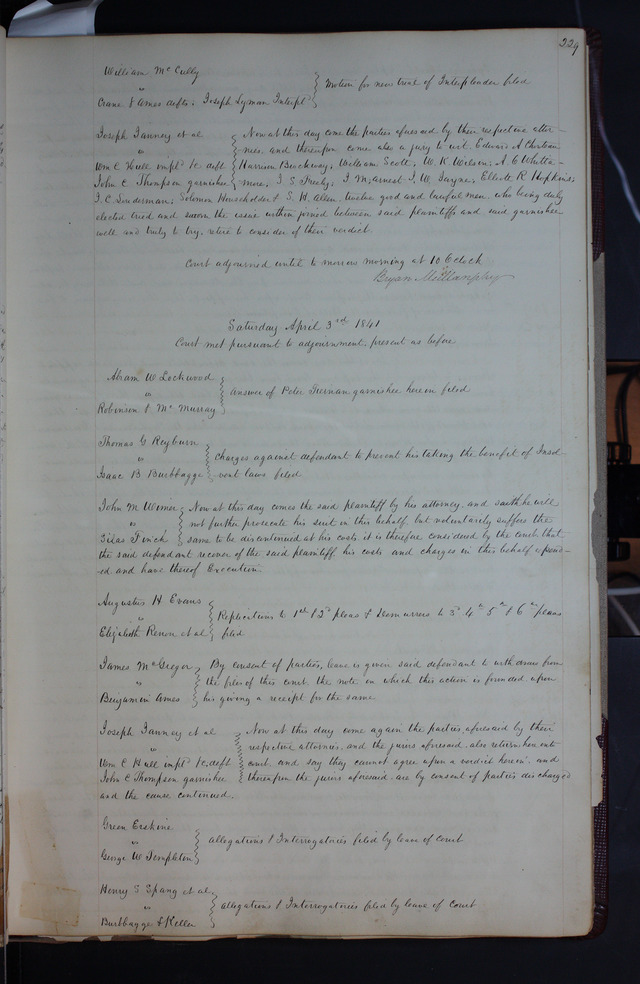 229
William Mc Cully
vs } Motion for new trial of Interpleader filed
Crane & Ames defts. Joseph Lyman Interpl
Joseph Tanney et al { Now at this day come the parties aforesaid by their respective attor-
vs nies, and thereupon come also a jury to wit Edward A
Wm C Hull impld &c. deft Harrison Brockway, William Scott, W. K. Wilson, A. C
John C Thompson garnishee more, J. S J. M. J. W. Elliott R Hopkins,
J. C. Solomon Householder & S. H. Allen twelve good and lawful men, who being duly
elected tried and sworn the issue within joined between said plaintiffs and said garnishee
well and truly to try, retire to consider of their verdict
Court adjourned until to morrow morning at 10 O'clock
Bryan Mullanphy
Saturday April 3rd 1841
Court met pursuant to adjournment, present as before
Abram W Lockwood
vs } answer of Peter garnishee herein filed
Robinson & Mc Murray
Thomas G Reyburn
vs } charges against defendant to prevent his taking the benefit of Insol-
Isaac B Burbbayge vent laws filed
John M Wimer { Now at this day comes the said plaintiff by his attorney, and saith he will
vs not further prosecute his suit in this behalf, but voluntarily suffers the
Silas Finch same to be discontinued at his costs it is therefore considered by the court that
the said defendant recover of the said plaintiff his costs and charges in this behalf expend-
ed and have thereof Execution
Augustus H Evans
vs } Replications to 1st & 2d pleas & Demurrers to 3d 4th 5th & 6th pleas
Elizabeth et al filed
James McGregor } By consent of parties, leave is given said defendant to withdraw from
vs the files of this court, the note on which this action is founded upon
Benjamin Ames his giving a receipt for the same
Joseph Tanney et al { Now at this day come again the parties aforesaid by their
vs respective attornies, and the jurors aforesaid, also return here into
Wm C Hull impld &c. deft court and say they cannot agree upon a verdict herein, and
John C Thompson garnishee thereupon the jurors aforesaid are by consent of parties discharged
and the cause continued.
Green Erskine
vs } allegations & Interrogatories filed by leave of court
George W Templeton
Henry S Spang et al
vs } allegations & Interrogatories filed by leave of Court
Burbbayge & Keller